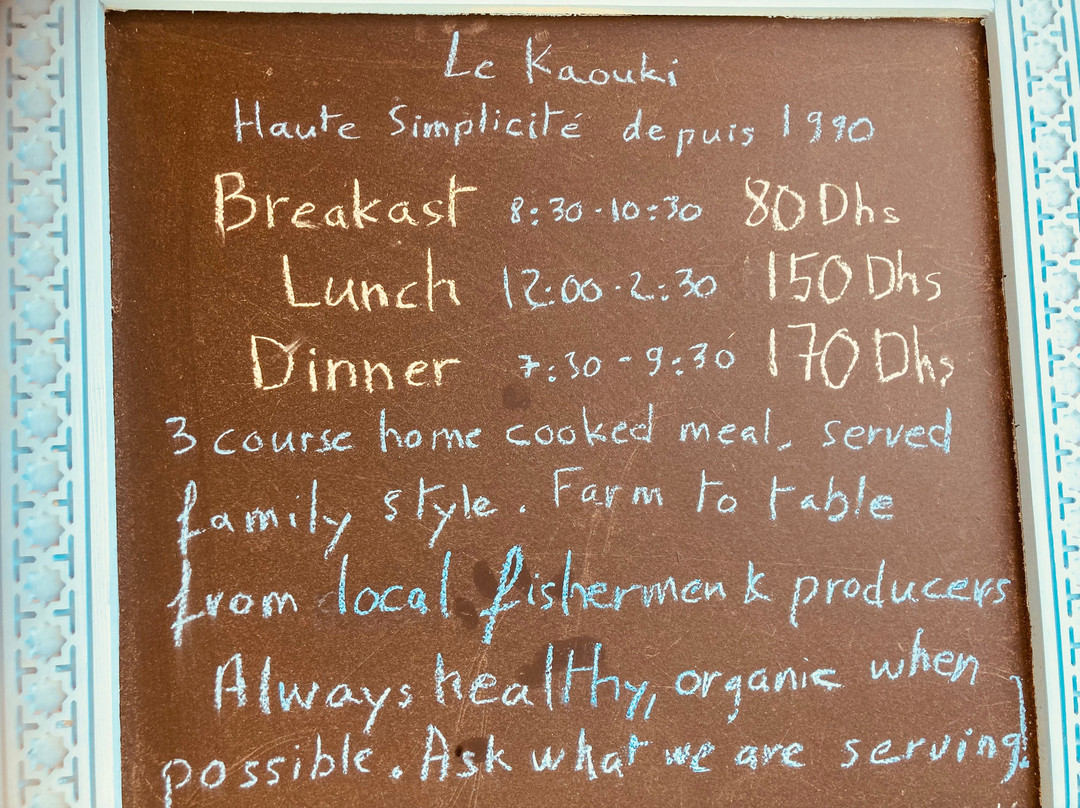 Le Kaouki
Haute Simplicité depuis 1990
Breakast 8:30-10:30 80 Dhs
Lunch 12:00-2:30 150 Dhs
Dinner 7:30-9:30 170 Dhs
3 course home cooked meal, served
family style. Farm to table
from local fishermen & producers
Always healthy, organic when
possible. Ask what we are serving!